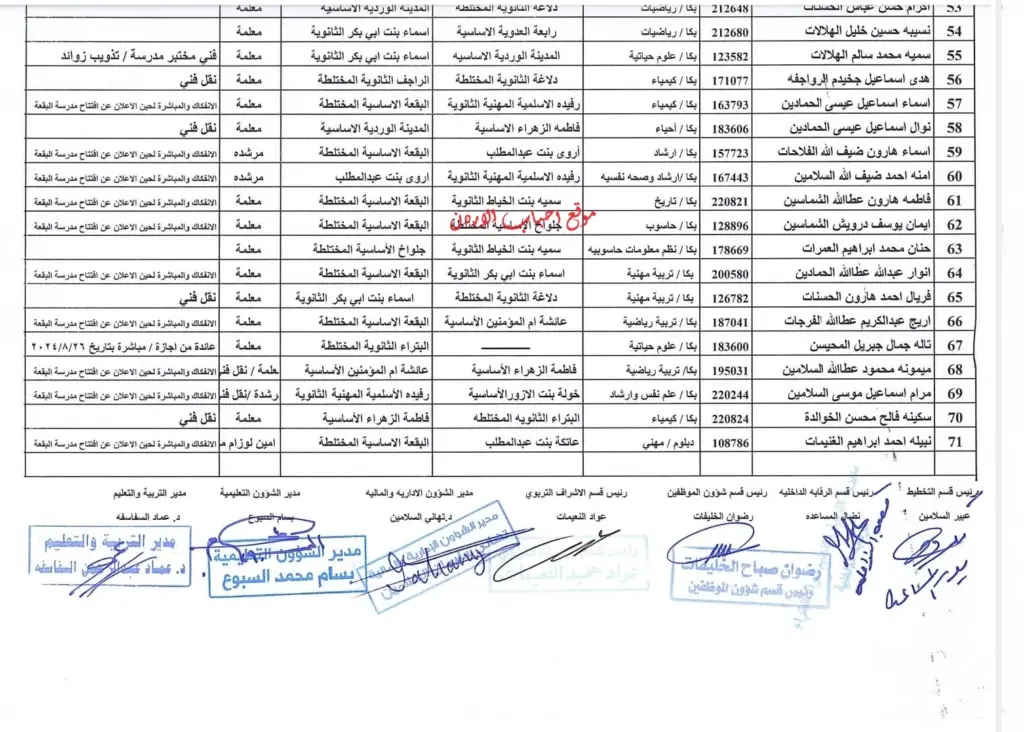 53 اكرام حسن عباس الحسنات 212648 بكا / رياضيات دلاغة الثانوية المختلطة المدينة الوردية الاساسية معلمة
54 نسيبه حسين خليل الهلالات 212680 بكا / رياضيات رابعة العدوية الاساسية اسماء بنت ابي بكر الثانوية معلمة
55 سميه محمد سالم الهلالات 123582 بكا / علوم حياتية المدينة الوردية الاساسيه اسماء بنت ابي بكر الثانوية معلمة فني مختبر مدرسة / تذويب زوائد
56 هدى اسماعيل جخيدم الرواجفه 171077 بكا / كيمياء دلاغة الثانوية المختلطة الراجف الثانوية المختلطة معلمة نقل فني
57 اسماء اسماعيل عيسى الحمادين 163793 بكا / كيمياء رفيده الاسلمية المهنية الثانوية البقعة الاساسية المختلطة معلمة الانفكاك والمباشرة لحين الاعلان عن افتتاح مدرسة البقعة
58 نوال اسماعيل عيسى الحمادين 183606 بكا / أحياء فاطمه الزهراء الاساسية المدينة الوردية الاساسية معلمة نقل فني
59 اسماء هارون ضيف الله الفلاحات 157723 بكا / ارشاد أروى بنت عبدالمطلب البقعة الاساسية المختلطة مرشده الانفكاك والمباشرة لحين الاعلان عن افتتاح مدرسة البقعة
60 امنه احمد ضيف الله السلامين 167443 بكا /ارشاد وصحه نفسيه رفيده الاسلمية المهنية الثانوية اروى بنت عبدالمطلب مرشده الانفكاك والمباشرة لحين الاعلان عن افتتاح مدرسة البقعة
61 فاطمه هارون عطاالله الشماسين 220821 بكا / تاريخ سميه بنت الخياط الثانوية البقعة الاساسية المختلطة معلمة الانفكاك والمباشرة لحين الاعلان عن افتتاح مدرسة البقعة
موقع احباب الاردن
62 ايمان يوسف درويش الشماسين 128896 بكا / حاسوب جلواخ الاساسية المختلطة البقعة الاساسية المختلطة معلمة الانفكاك والمباشرة لحين الاعلان عن افتتاح مدرسة البقعة
63 حنان محمد ابراهيم العمرات 178669 بكا / نظم معلومات حاسوبيه سميه بنت الخياط الثانوية جلواخ الأساسية المختلطة معلمة
64 انوار عبدالله عطاالله الحمادين 200580 بكا / تربية مهنية اسماء بنت أبي بكر الثانوية البقعة الاساسية المختلطة معلمة الانفكاك والمباشرة لحين الاعلان عن افتتاح مدرسة البقعة
65 فريال احمد هارون الحسنات 126782 بكا / تربية مهنية دلاغة الثانوية المختلطة اسماء بنت ابي بكر الثانوية معلمة نقل فني
66 اريج عبدالكريم عطاالله الفرجات 187041 بكا / تربية رياضية عائشة ام المؤمنين الأساسية البقعة الاساسية المختلطة معلمة الانفكاك والمباشرة لحين الاعلان عن افتتاح مدرسة البقعة
67 تاله جمال جبريل المحيسن 183600 بكا / علوم حياتية ——— البتراء الثانوية المختلطة معلمة عائدة من اجازة / مباشرة بتاريخ ٢٠٢٤/٨/٢٦
68 ميمونه محمود عطاالله السلامين 195031 بكا/ تربية رياضية فاطمة الزهراء الأساسية عائشة ام المؤمنين الأساسية معلمة / نقل فني الانفكاك والمباشرة لحين الاعلان عن افتتاح مدرسة البقعة
69 مرام اسماعيل موسى السلامين 220244 بكا / علم نفس وارشاد خولة بنت الازورالأساسية رفيده الأسلمية المهنية الثانوية رشدة /نقل فني الانفكاك والمباشرة لحين الاعلان عن افتتاح مدرسة البقعة
70 سكينه فالح محسن الخوالدة 220824 بكا / كيمياء البتراء الثانويه المختلطه فاطمة الزهراء الأساسية معلمة نقل فني
71 نبيله احمد ابراهيم الغنيمات 108786 دبلوم / مهني عاتكة بنت عبدالمطلب البقعة الاساسية المختلطة امين لوازم م الانفكاك والمباشرة لحين الاعلان عن افتتاح مدرسة البقعة
رئيس قسم التخطيط رئيس قسم الرقابه الداخليه رئيس قسم شؤون الموظفين رئيس قسم الاشراف التربوي مدير الشؤون الاداريه والماليه مدير الشؤون التعليمية مدير التربية والتعليم
عبير السلامين نضال المساعده رضوان الخليفات عواد النعيمات د.تهاني السلامين بسام السبوع د. عماد السفاسفه
رضوان صباح الخليفات
رئيس قسم شؤون الموظفين
عواد حميد النعيمات
مدير الشؤون الإدارية والمالية
مدير الشؤون التعليمية
بسام محمد السبوع
مدير التربية والتعليم
د. عماد السفاسفه